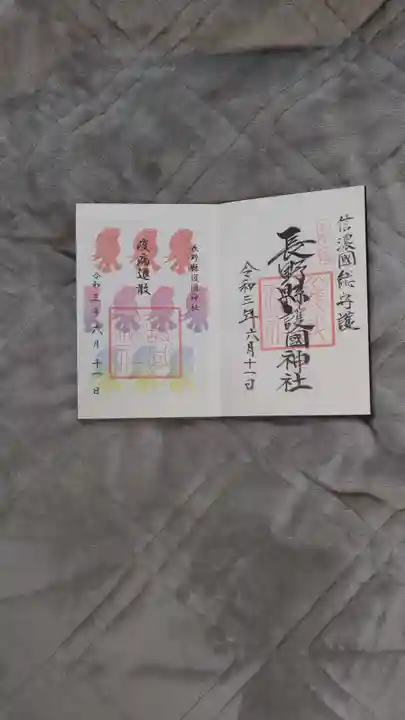 信濃國総守護
長野縣護國神社
令和三年六月十一日
長野縣護國神社
疫病退散
令和三年六月十一日